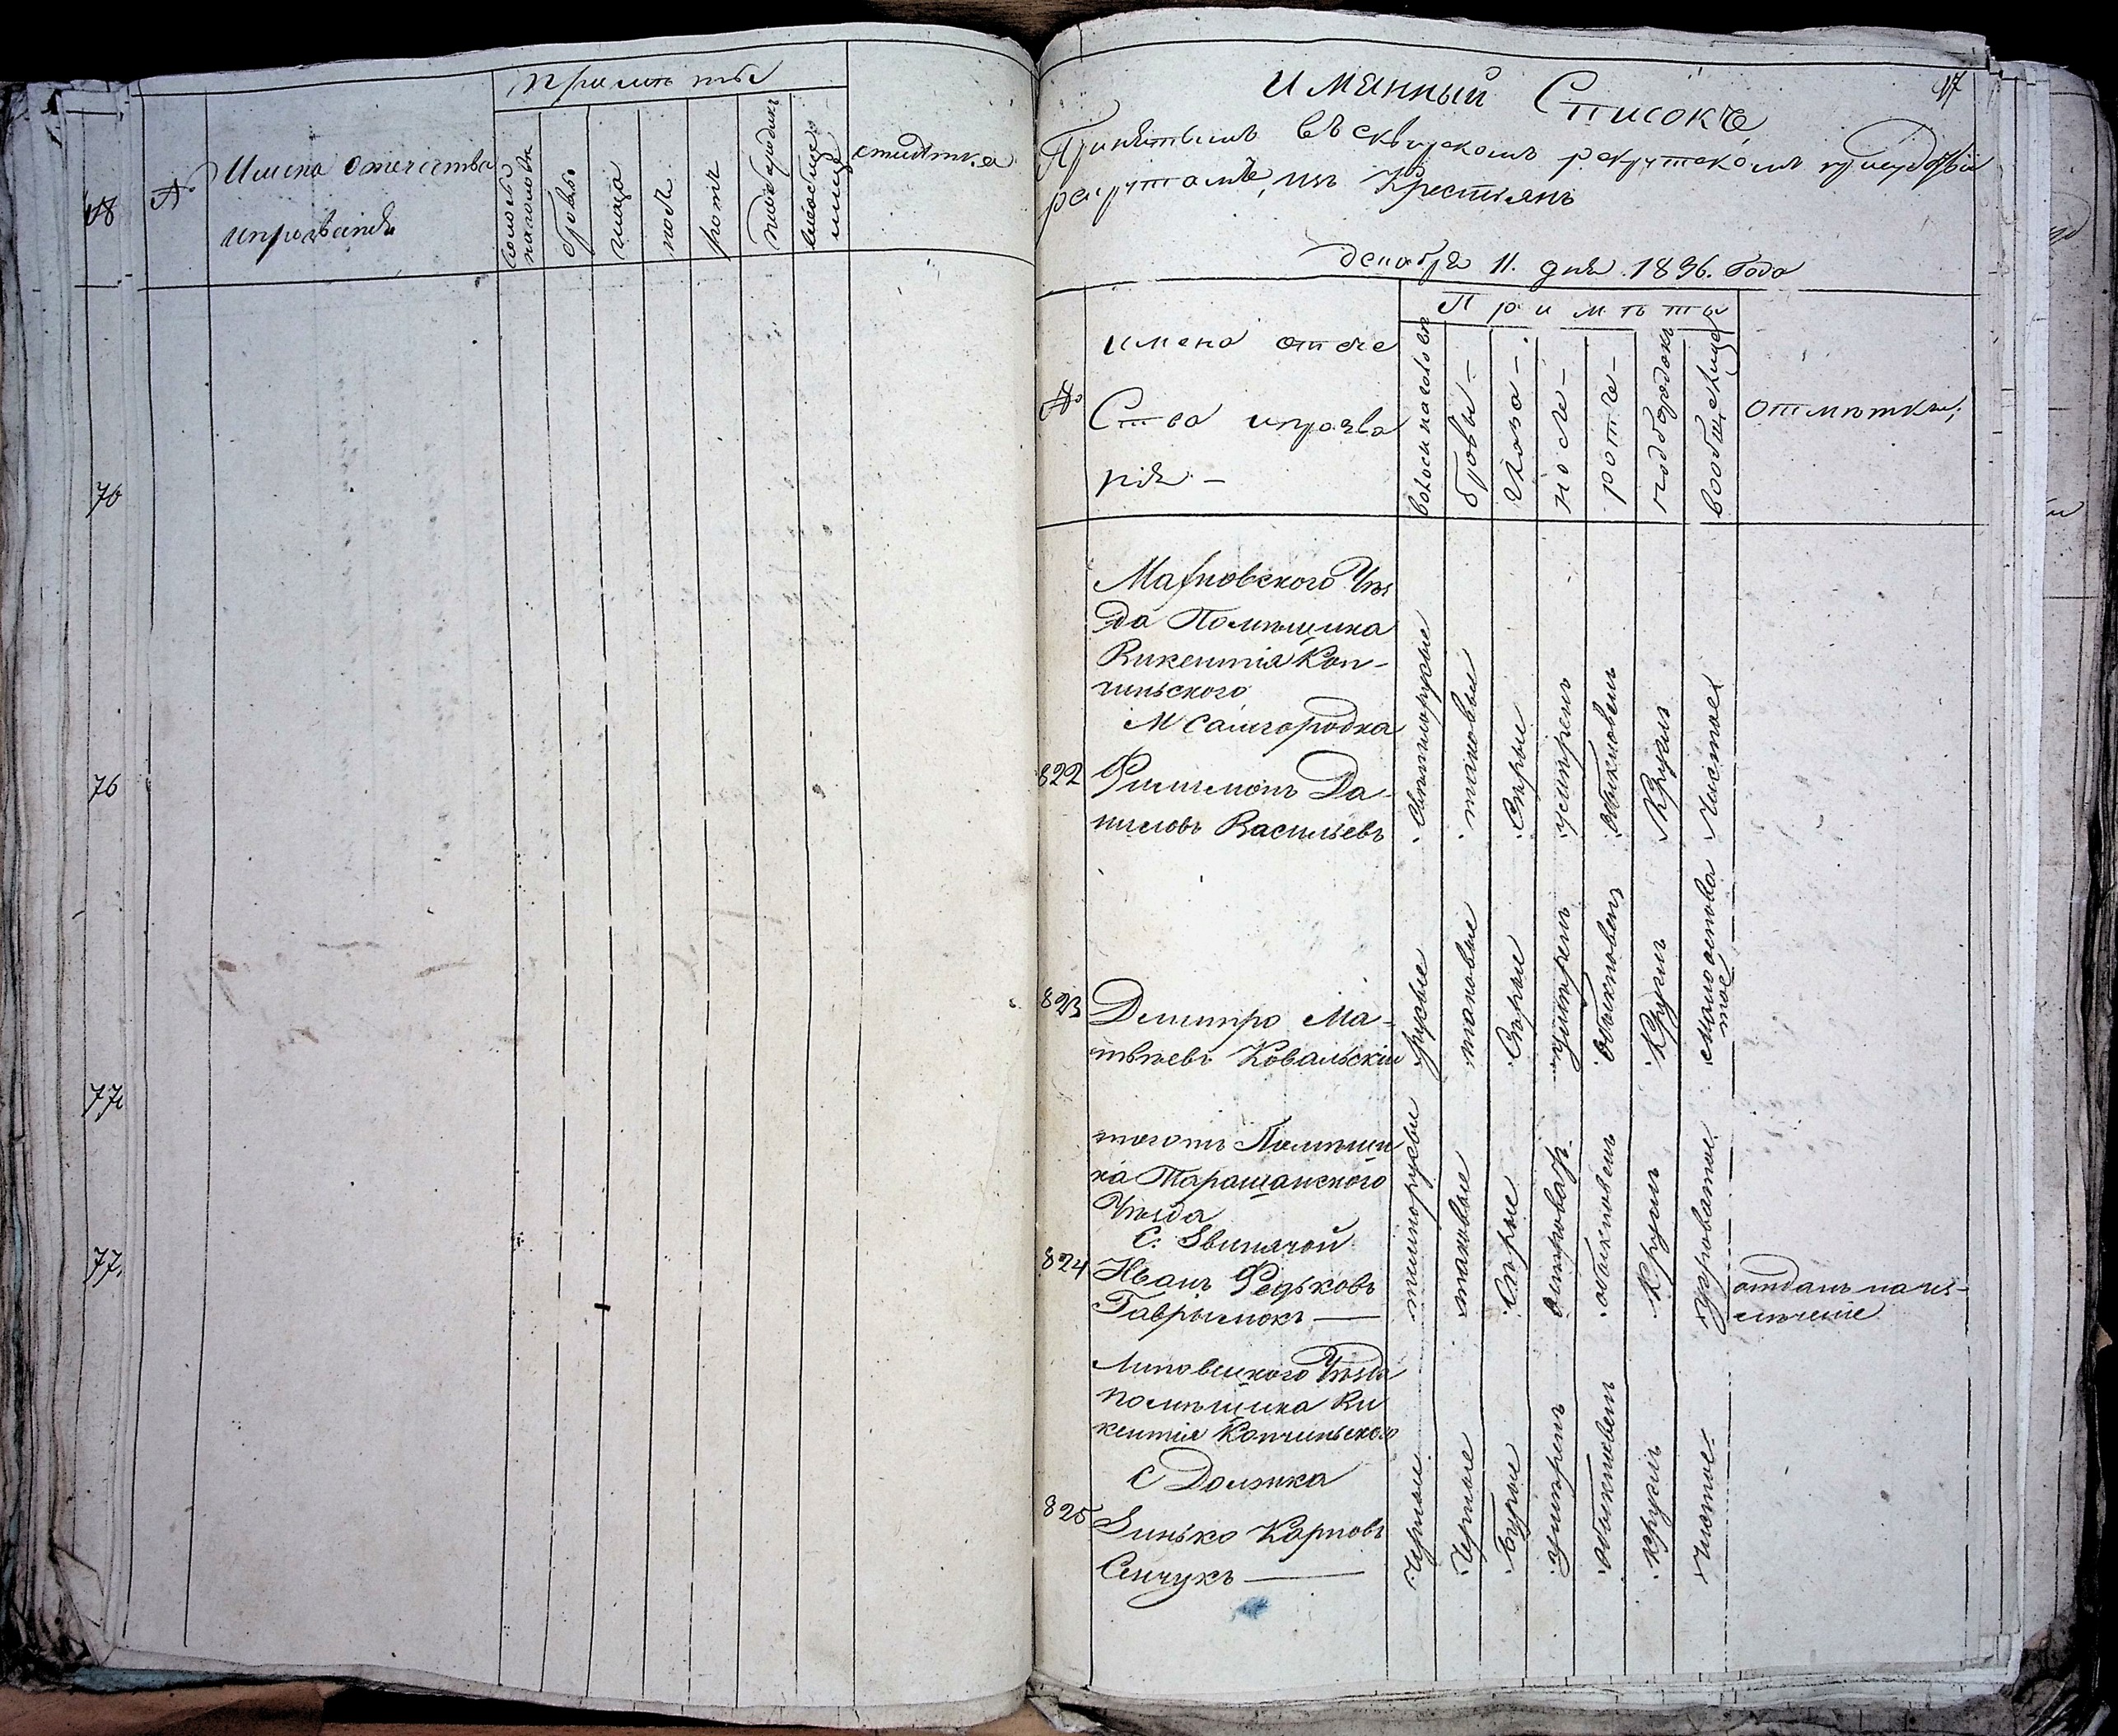 48
70
76
77
77.
№
Имена отечества
и прозванія
Примѣты
волосы на головѣ
бровы
глаза
носъ
ротъ
подбородокъ
вообще лице
отмѣтка
17
Имянный Списокъ
Принятымъ въ сквирскомъ рекрутскомъ присудствіи
рекрутамъ, изъ Крестьянъ
декабря 11. дня 1836. Года
№
имена отче
Ства и прозва
нія. –
Примѣты
волосы на головѣ
бровы –
глаза –
носъ –
ротъ –
подбородокъ
вообще лице
отмѣтки;
Махновского Уѣз
да Помѣщика
Викентія Коп-
чиньского
М Самгородка
822
Филимонъ Да-
ниловъ Васильевъ
свѣтлорусые
таковыи
Сѣрые
умѣренъ
обыкновенъ
Круглъ
Чистое
823
Дмитро Ма-
твѣевъ Ковальскій
русые
таковые
Сѣрые
умѣренъ
обыкновенъ
Круглъ
малооспова
тое
тогожъ Помѣщи
ка Таращанского
Уѣзда
С. Звинячой
824
Иванъ Федьковъ
Гаврилюкъ
темнорусы
таковые
Сѣрые
островат.
обыкновенъ
Круглъ
угроватое
отданъ на из-
лѣченіе
Липовецкого Уѣзда
помѣщика Ви
кентія Копчиньского
С Должка
825
Зинько Карповъ
Сенчукъ
Черные
Черные
бурые
умѣренъ
обыкновенъ
круглъ
чистое